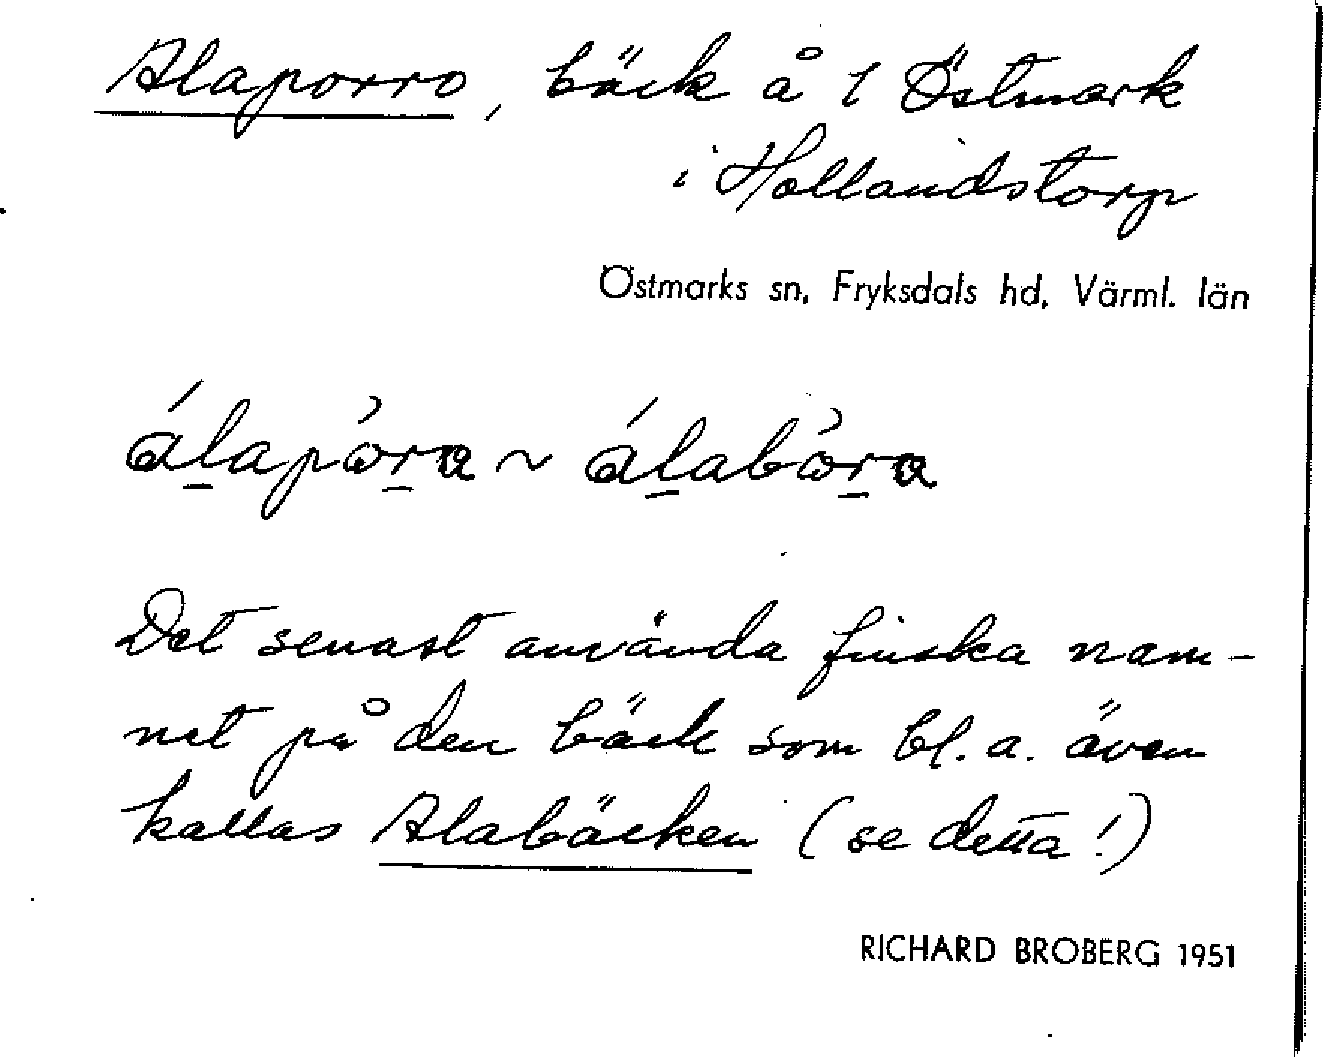 Alaporro, bäck å 1 Östmark
i Hollandstorp
Östmarks sn, Fryksdals hd, Värml. län
álapòra ~ álabòra
Det senast använda finska nam-
net på den bäck som bl. a. även
kallas Alabäcken (se detta!)
RICHARD BROBERG 1951